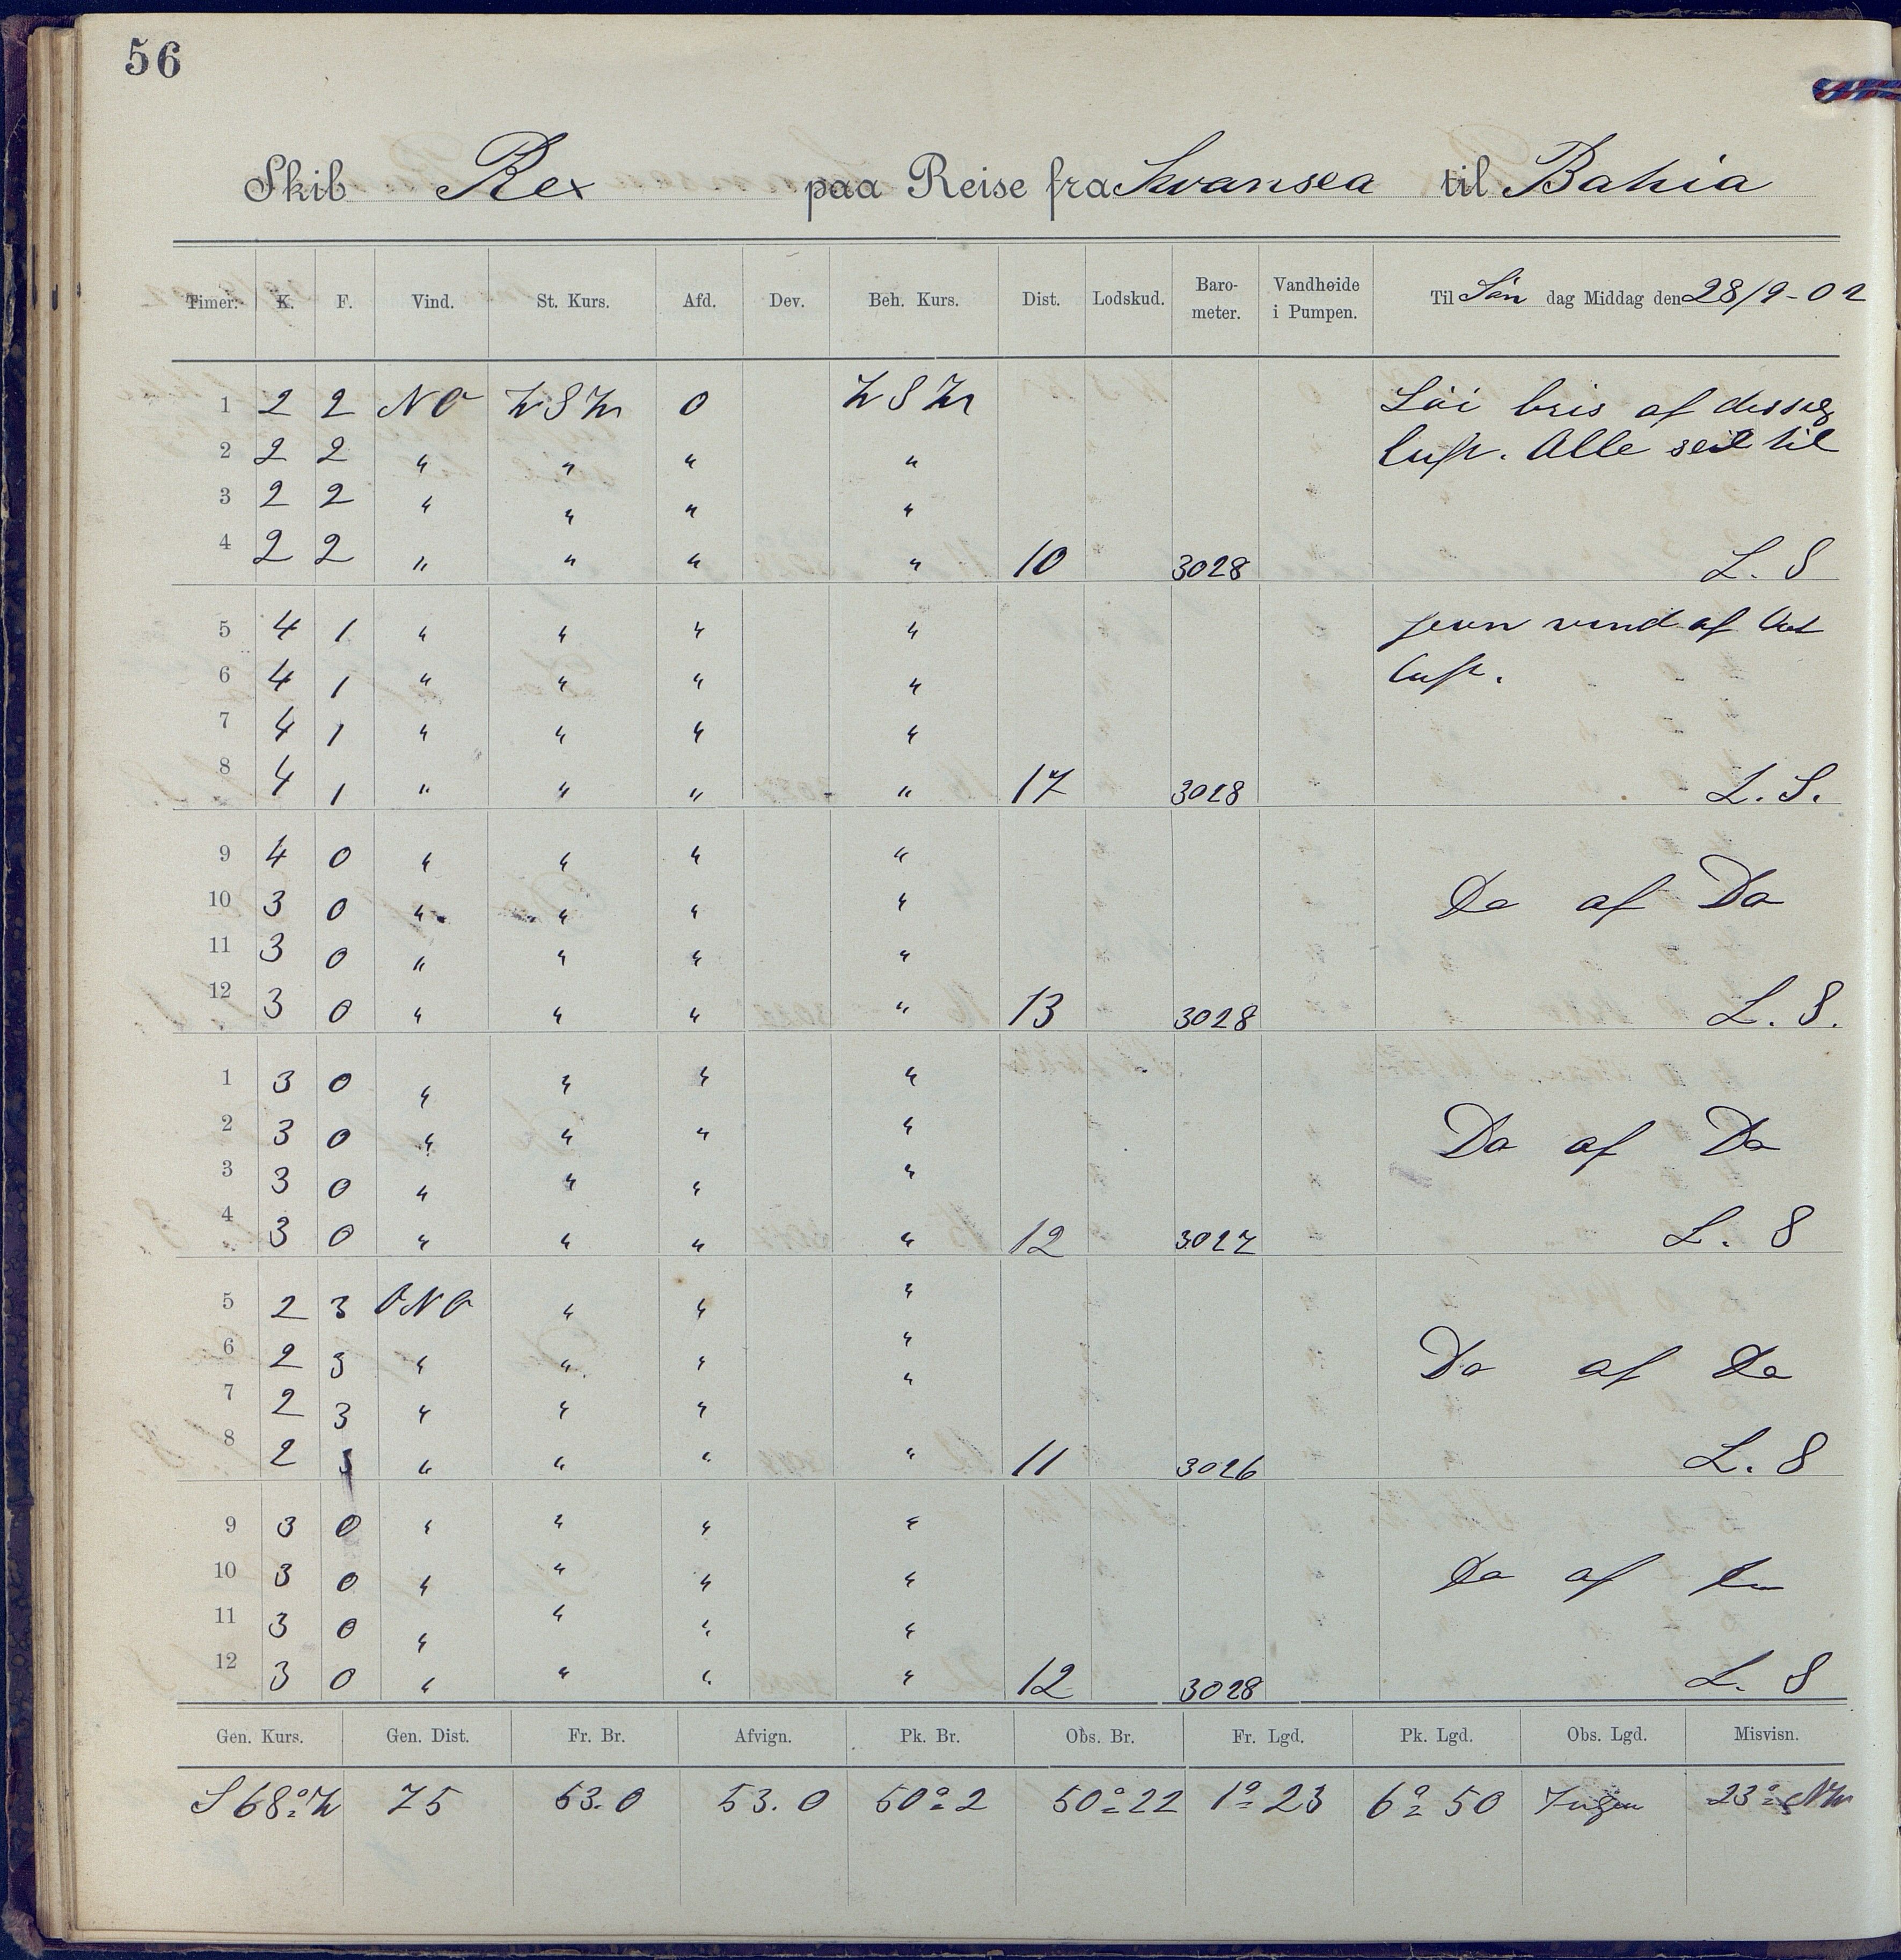 56
Skib Rex paa Reise fra Swansea til Bahia
Timer. K. F. Vind. St. Kurs. Afd. Dev. Beh. Kurs. Dist. Lodskud. Baro-meter. Vandhøide i Pumpen. Til Søn dag Middag den 28/9-02
1 2 2 NO WSW 0 WSW Løi bris af
2 2 2 " " " " luft. Alle seil til
3 2 2 " " " "
4 2 2 " " " " 10 3028 L. S
5 4 1 " " " " jevn vind af
6 4 1 " " " " luft.
7 4 1 " " " "
8 4 1 " " " " 17 3028 L. S.
9 4 0 " " " "
10 3 0 " " " " Do af Do
11 3 0 " " " "
12 3 0 " " " " 13 3028 L. S.
1 3 0 " " " "
2 3 0 " " " " Do af Do
3 3 0 " " " "
4 3 0 " " " " 12 3027 L. S
5 2 3 ONO " " "
6 2 3 " " " " Do af Do
7 2 3 " " " "
8 2 3 " " " " 11 3026 L. S
9 3 0 " " " "
10 3 0 " " " " Do af Do
11 3 0 " " " "
12 3 0 " " " " 12 3028 L. S
Gen. Kurs. Gen. Dist. Fr. Br. Afvign. Pk. Br. Obs. Br. Fr. Lgd. Pk. Lgd. Obs. Lgd. Misvisn.
S 68° W 75 53.0 53.0 50° 2 50° 22 1° 23 6° 50 Ingen 23° NW